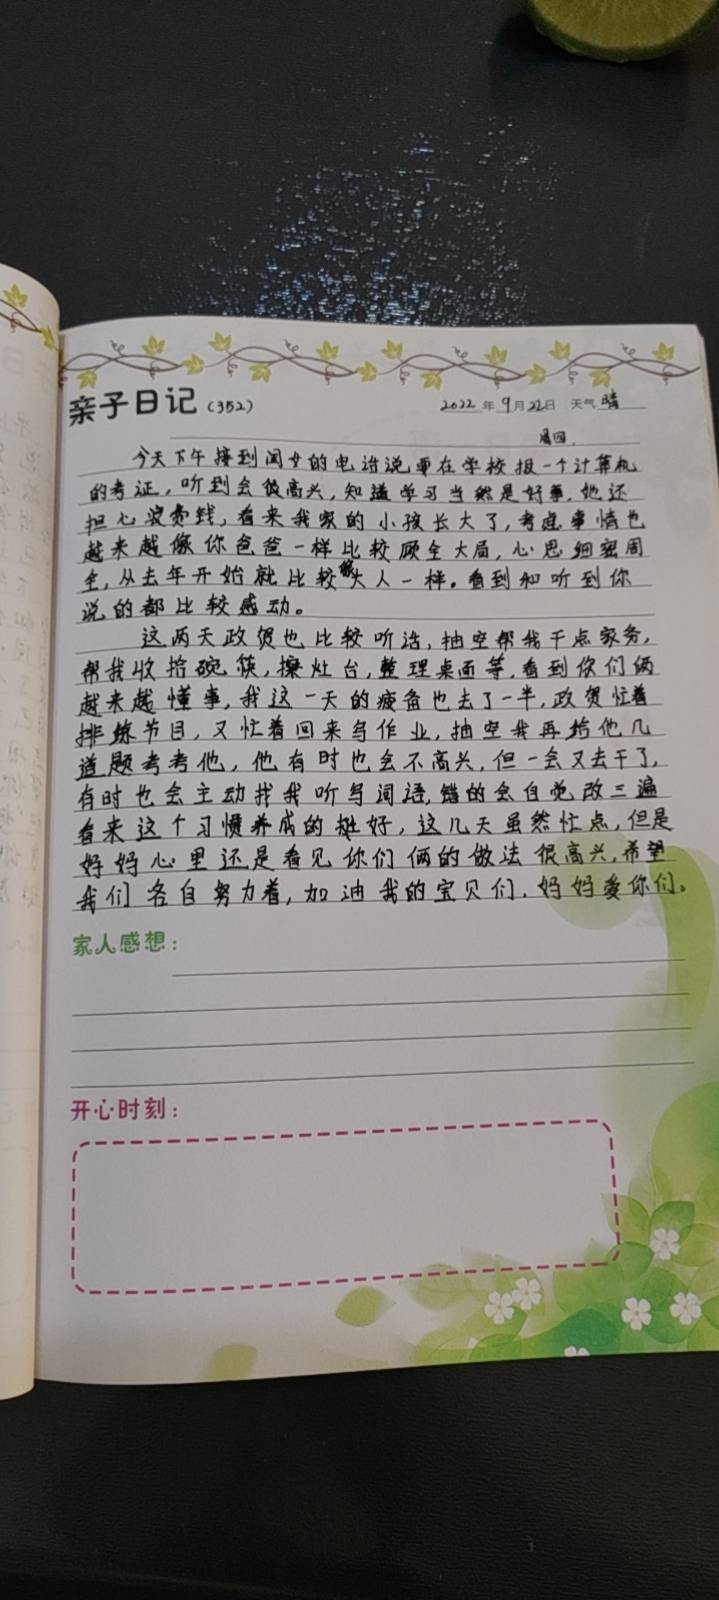 亲子日记(352)
2022年9月22日 天气晴
周四.
今天下午接到闺女的电话说要在学校报一个计算机
的考证,听到会很高兴,知道学习当然是好事,她还
担心浪费钱,看来我家的小孩长大了,考虑事情也
越来越像你爸爸一样比较顾全大局,心思细密周
全,从去年开始就比较像大人一样。看到和听到你
说的都比较感动。
这两天政贺也比较听话,抽空帮我干点家务,
帮我收拾碗筷,擦灶台,整理桌面等,看到你们俩
越来越懂事,我这一天的疲备也去了一半,政贺忙着
排练节目,又忙着回来写作业,抽空我再给他几
道题考考他,他有时也会不高兴,但一会又去干了,
有时也会主动找我听写词语,错的会自觉改三遍
看来这个习惯养成的挺好,这几天虽然忙点,但是
妈妈心里还是看见你们俩的做法很高兴,希望
我们各自努力着,加油我的宝贝们.妈妈爱你们。
家人感想:
开心时刻: